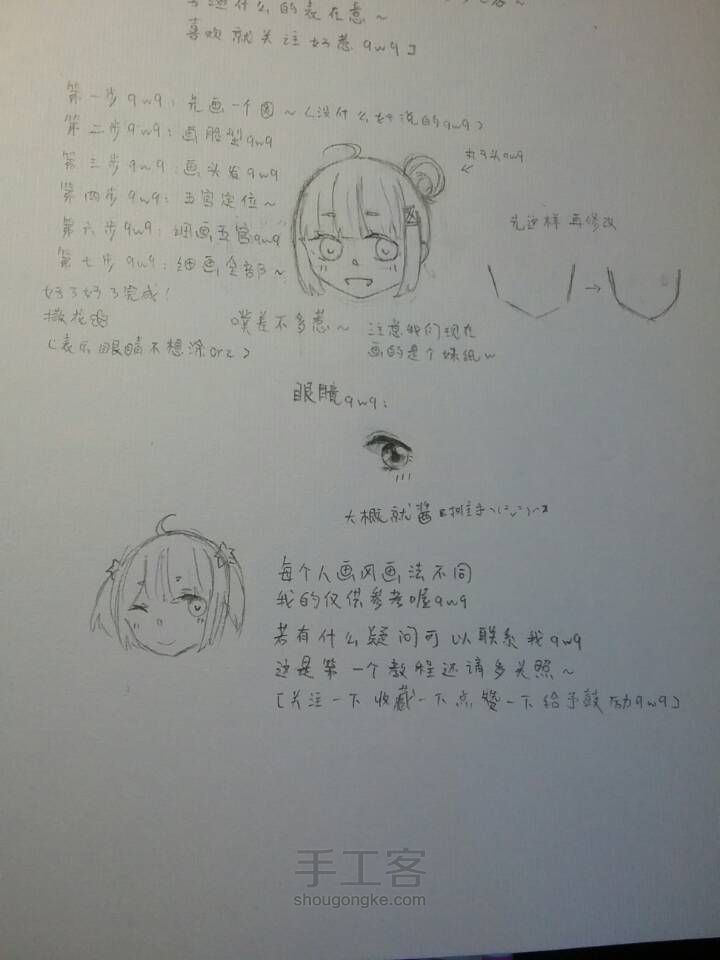 喜欢就关注好惹qwq]
第一步qwq:先画一个圆~(没什么好说的qwq)
第二步qwq:画脸型qwq
第三步qwq:画头发qwq
第四步qwq:五官定位~
第六步qwq:细画五官qwq
第七步qwq:细画全部~
好了好了完成!
撒花
(表示眼睛不想涂orz)
丸子头qwq
先这样再修改
噗差不多惹~
注意我们现在
画的是个妹纸w
眼睛qwq:
大概就酱
每个人画风画法不同
我的仅供参考喔qwq
若有什么疑问可以联系我qwq
这是第一个教程还请多关照~
[关注一下收藏一下点赞一下给予鼓励qwq]
手工客
shougongke.com